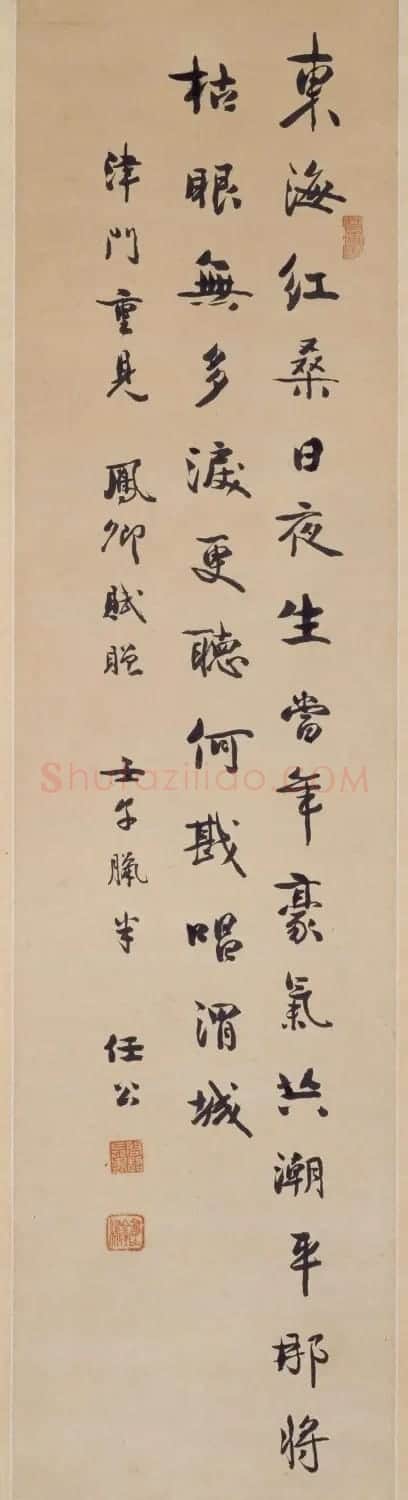 東海紅桑日夜生當年豪氣共潮平那將
枯眼無多淚更聽何戡唱渭城
津門重見 鳳卿賦贈 壬子臘半 任公
Shufaziliao.COM